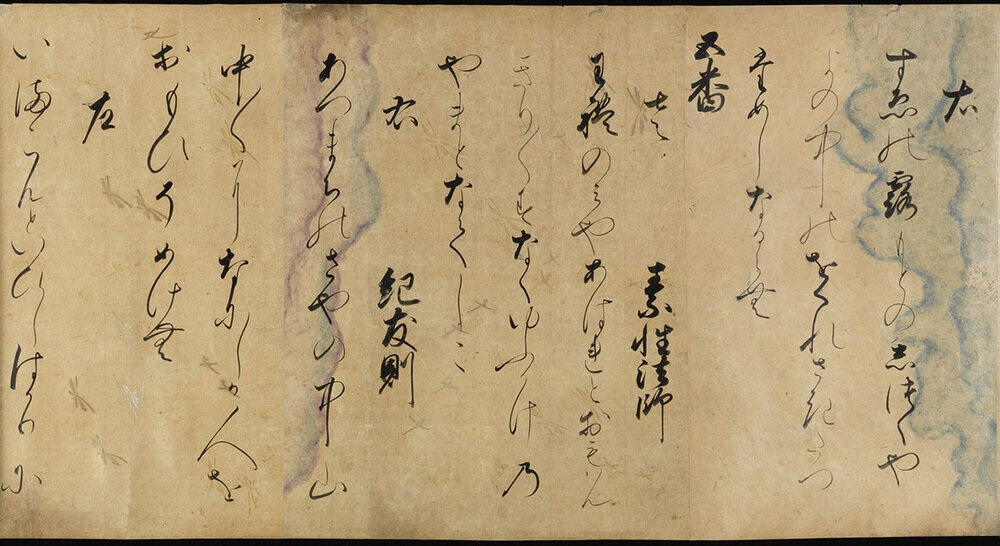 右
すゑの露もとのしつくや
よの中のをくれさきたつ
ためしなるらむ
五番
左　素性法師
われのみやあはれとおもはん
きり〱すなくゆふかけの
やまとなてしこ
右　紀友則
あつまちのさやの中山
中〱になにしか人を
おもひそめけむ
左
いまこんといひしはかりに